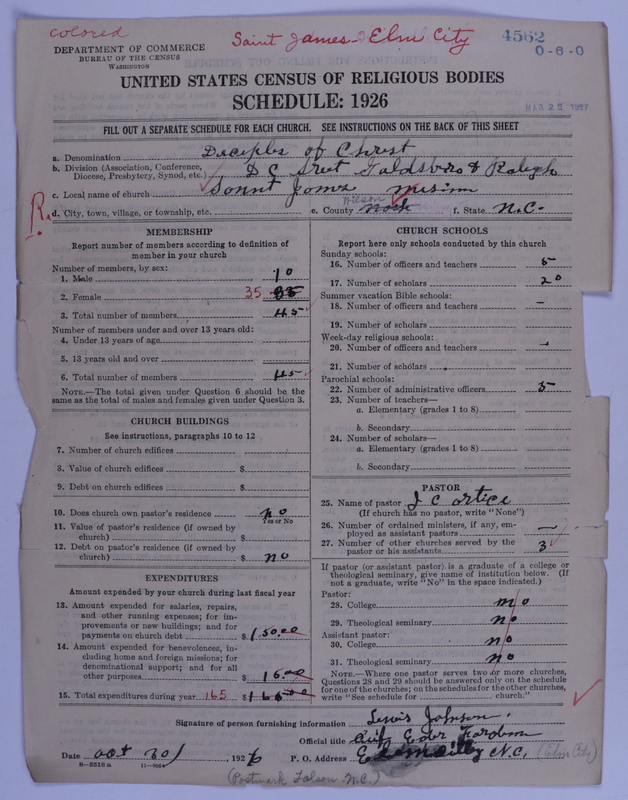 colored
Saint James - Elm City
4562
0-6-0
DEPARTMENT OF COMMERCE
BUREAU OF THE CENSUS
WASHINGTON
UNITED STATES CENSUS OF RELIGIOUS BODIES
SCHEDULE: 1926
MAR 22 1927
FILL OUT A SEPARATE SCHEDULE FOR EACH CHURCH. SEE INSTRUCTIONS ON THE BACK OF THIS SHEET
a. Denomination Deciples of Christ
b. Division (Association, Conference, Diocese, Presbytery, Synod, etc.) D C Goldsboro & Raleigh
c. Local name of church
R.
d. City, town, village, or township, etc. e. County Wilson Nash f. State N.C.
MEMBERSHIP
Report number of members according to definition of member in your church
Number of members, by sex:
1. Male 10
2. Female 35
3. Total number of members 45
Number of members under and over 13 years old:
4. Under 13 years of age
5. 13 years old and over
6. Total number of members 45
NOTE.—The total given under Question 6 should be the same as the total of males and females given under Question 3.
CHURCH BUILDINGS
See instructions, paragraphs 10 to 12
7. Number of church edifices
8. Value of church edifices $
9. Debt on church edifices $
10. Does church own pastor's residence no
Yes or No
11. Value of pastor's residence (if owned by church) $
12. Debt on pastor's residence (if owned by church) $ no
EXPENDITURES
Amount expended by your church during last fiscal year
13. Amount expended for salaries, repairs, and other running expenses; for improvements or new buildings; and for payments on church debt $ 150.00
14. Amount expended for benevolences, including home and foreign missions; for denominational support; and for all other purposes $ 15.00
15. Total expenditures during year 165 $ 165.00
CHURCH SCHOOLS
Report here only schools conducted by this church
Sunday schools:
16. Number of officers and teachers 5
17. Number of scholars 20
Summer vacation Bible schools:
18. Number of officers and teachers –
19. Number of scholars
Week-day religious schools:
20. Number of officers and teachers –
21. Number of scholars
Parochial schools:
22. Number of administrative officers 5
23. Number of teachers—
a. Elementary (grades 1 to 8)
b. Secondary
24. Number of scholars—
a. Elementary (grades 1 to 8)
b. Secondary
PASTOR
25. Name of pastor J C Artice
(If church has no pastor, write "None")
26. Number of ordained ministers, if any, employed as assistant pastors –
27. Number of other churches served by the pastor or his assistants 3
If pastor (or assistant pastor) is a graduate of a college or theological seminary, give name of institution below. (If not a graduate, write "No" in the space indicated.)
Pastor:
28. College no
29. Theological seminary no
Assistant pastor:
30. College no
31. Theological seminary no
NOTE.—Where one pastor serves two or more churches, Questions 28 and 29 should be answered only on the schedule for one of the churches; on the schedules for the other churches, write "See schedule for church."
Signature of person furnishing information Lewis Johnson
Official title
Date Oct 30 1926 P. O. Address N.C. (Elm City)
8—8518 a
(Postmark Faison N.C.)